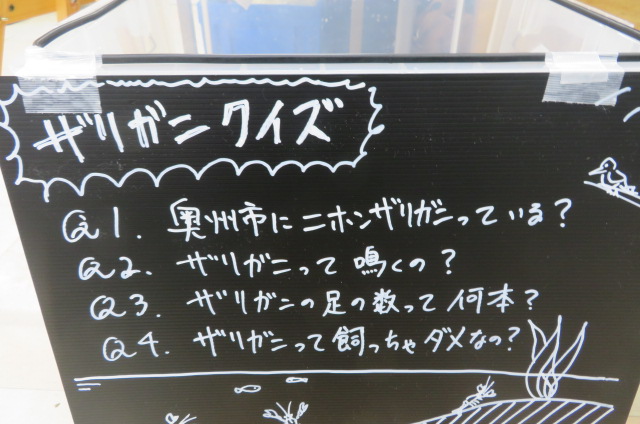 ザリガニクイズ
Q1. 奥州市にニホンザリガニっている?
Q2. ザリガニって鳴くの?
Q3. ザリガニの足の数って何本?
Q4. ザリガニって飼っちゃダメなの?